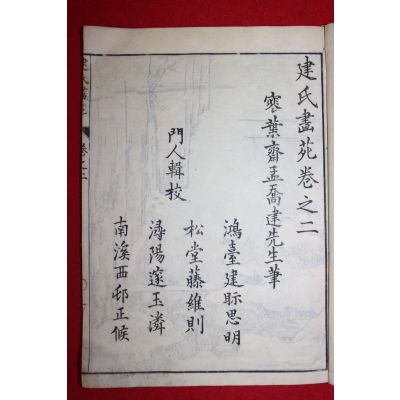 建氏畫苑卷之二
寒葉齋孟喬建先生筆
門人輯校
鴻臺建賑思明
松堂藤維則
潯陽邃玉濤
南溪西邨正候
建氏畫苑 卷之二